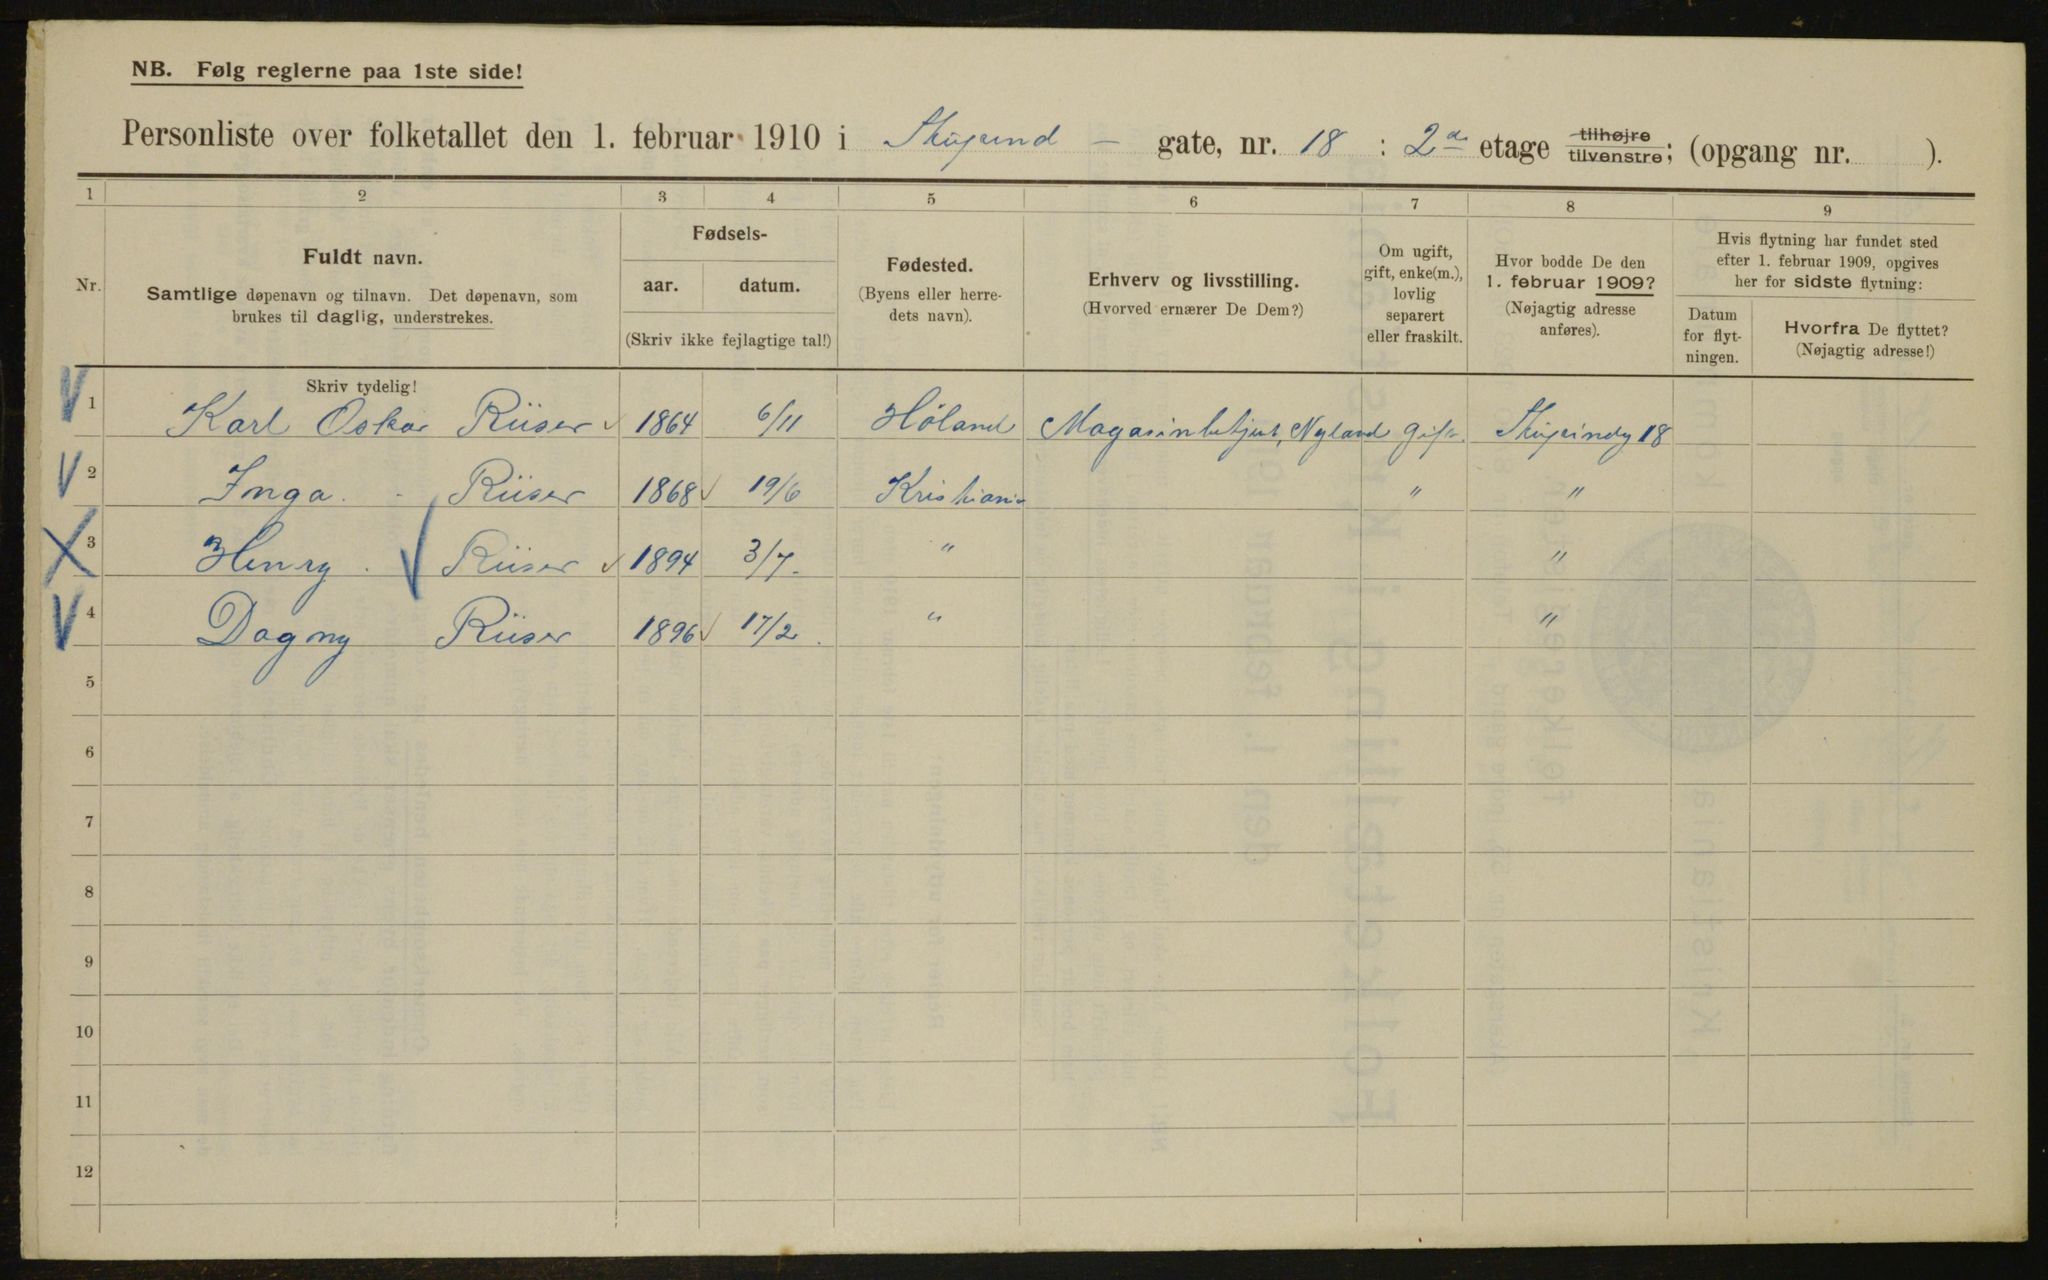 NB. Følg reglerne paa 1ste side!
Personliste over folketallet den 1. februar 1910 i gate, nr. 18 : 2de etage tilhøjre tilvenstre; (opgang nr. ).
1 2 3 4 5 6 7 8 9
Nr.
Fuldt navn.
Samtlige døpenavn og tilnavn. Det døpenavn, som
brukes til daglig, understrekes.
Fødsels-
aar. datum.
(Skriv ikke fejlagtige tal!)
Fødested.
(Byens eller herre-
dets navn).
Erhverv og livsstilling.
(Hvorved ernærer De Dem?)
Om ugift,
gift, enke(m.),
lovlig
separert
eller fraskilt.
Hvor bodde De den
1. februar 1909?
(Nøjagtig adresse
anføres).
Hvis flytning har fundet sted
efter 1. februar 1909, opgives
her for sidste flytning:
Datum
for flyt-
ningen.
Hvorfra De flyttet?
(Nøjagtig adresse!)
Skriv tydelig!
1 Karl Oskar Riiser 1864 6/11 Høland Magasinbetjent, Nyland Gift 18
2 Inga Riiser 1868 19/6 Kristiania " "
3 Henry Riiser 1894 3/7 " "
4 Dagny Riiser 1896 17/2 " "
5
6
7
8
9
10
11
12